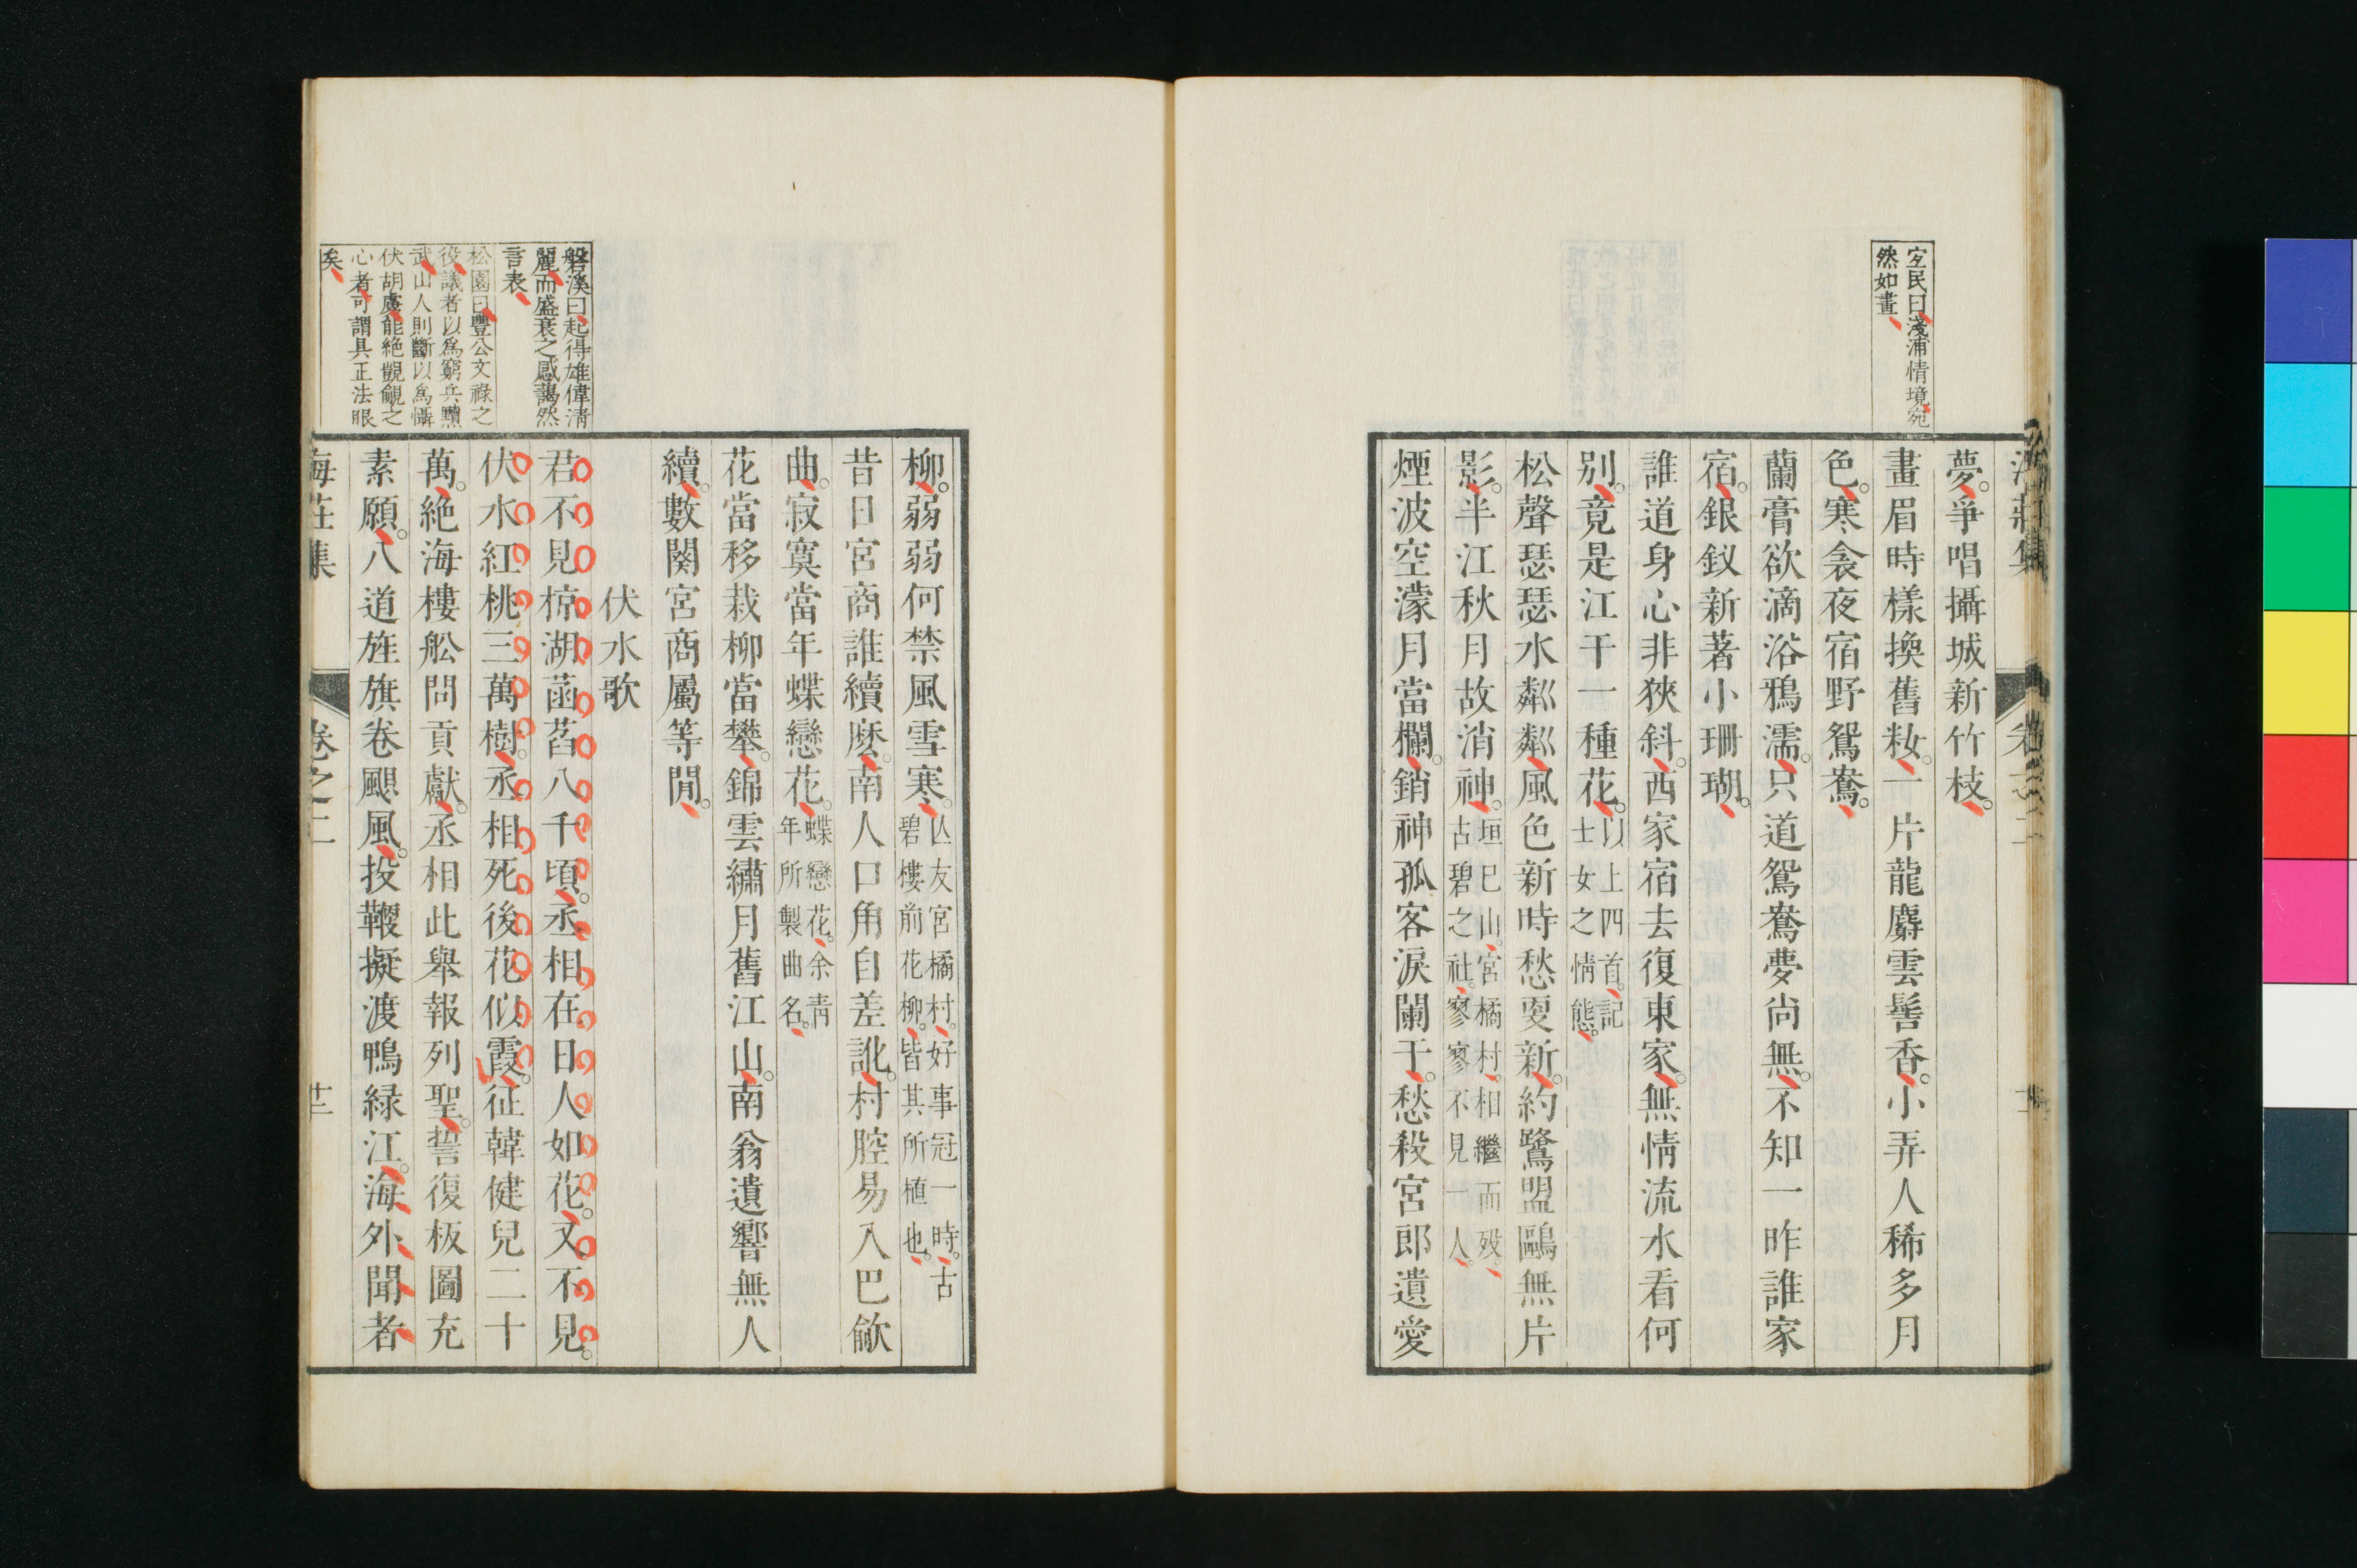 宐民曰淺浦情境宛
然如畫
夢。爭唱攝城新竹枝。
畫眉時樣換舊粧。一片龍麝雲髻香。小弄人稀多月
色。寒衾夜宿野鴛鴦。
蘭膏欲滴浴鴉濡。只道鴛鴦夢尚無。不知一昨誰家
宿。銀釵新著小珊瑚。
誰道身心非狹斜。西家宿去復東家。無情流水看何
別。竟是江干一種花。以上四首。記
士女之情態。
松聲瑟瑟水粼粼。風色新時愁更新。約鷺盟鷗無片
影。半江秋月故消神。垣巳山。宮橘村。相繼而歿。
古碧之社。寥寥不見一人。
煙波空濛月當欄。銷神孤客淚闌干。愁殺宮郎遺愛
柳。弱弱何禁風雪寒。亾友宮橘村。好事冠一時。古
碧樓前花柳。皆其所植也。
昔日宮商誰續麽。南人口角自差訛。村腔易入巴歈
曲。寂寞當年蝶戀花。蝶戀花。余靑
年所製曲名。
花當移栽柳當攀。錦雲繡月舊江山。南翁遺響無人
續。數闋宮商屬等閒。
伏水歌
君不見椋湖菡萏八千頃。丞相在日人如花。又不見。
伏水紅桃三萬樹。丞相死後花似霞。征韓健兒二十
萬。絕海樓舩問貢獻。丞相此舉報列聖。誓復板圖充
素願。八道旌旗卷颶風。投鞭擬渡鴨緑江。海外聞者
磐溪曰起得雄偉淸
麗而盛衰之感藹然
言表
松園曰豐公文祿之
役議者以爲窮兵黷
武山人則斷以爲懾
伏胡虜能絶覬覦之
心者可謂具正法眼
矣
海莊集
卷之二
廿二